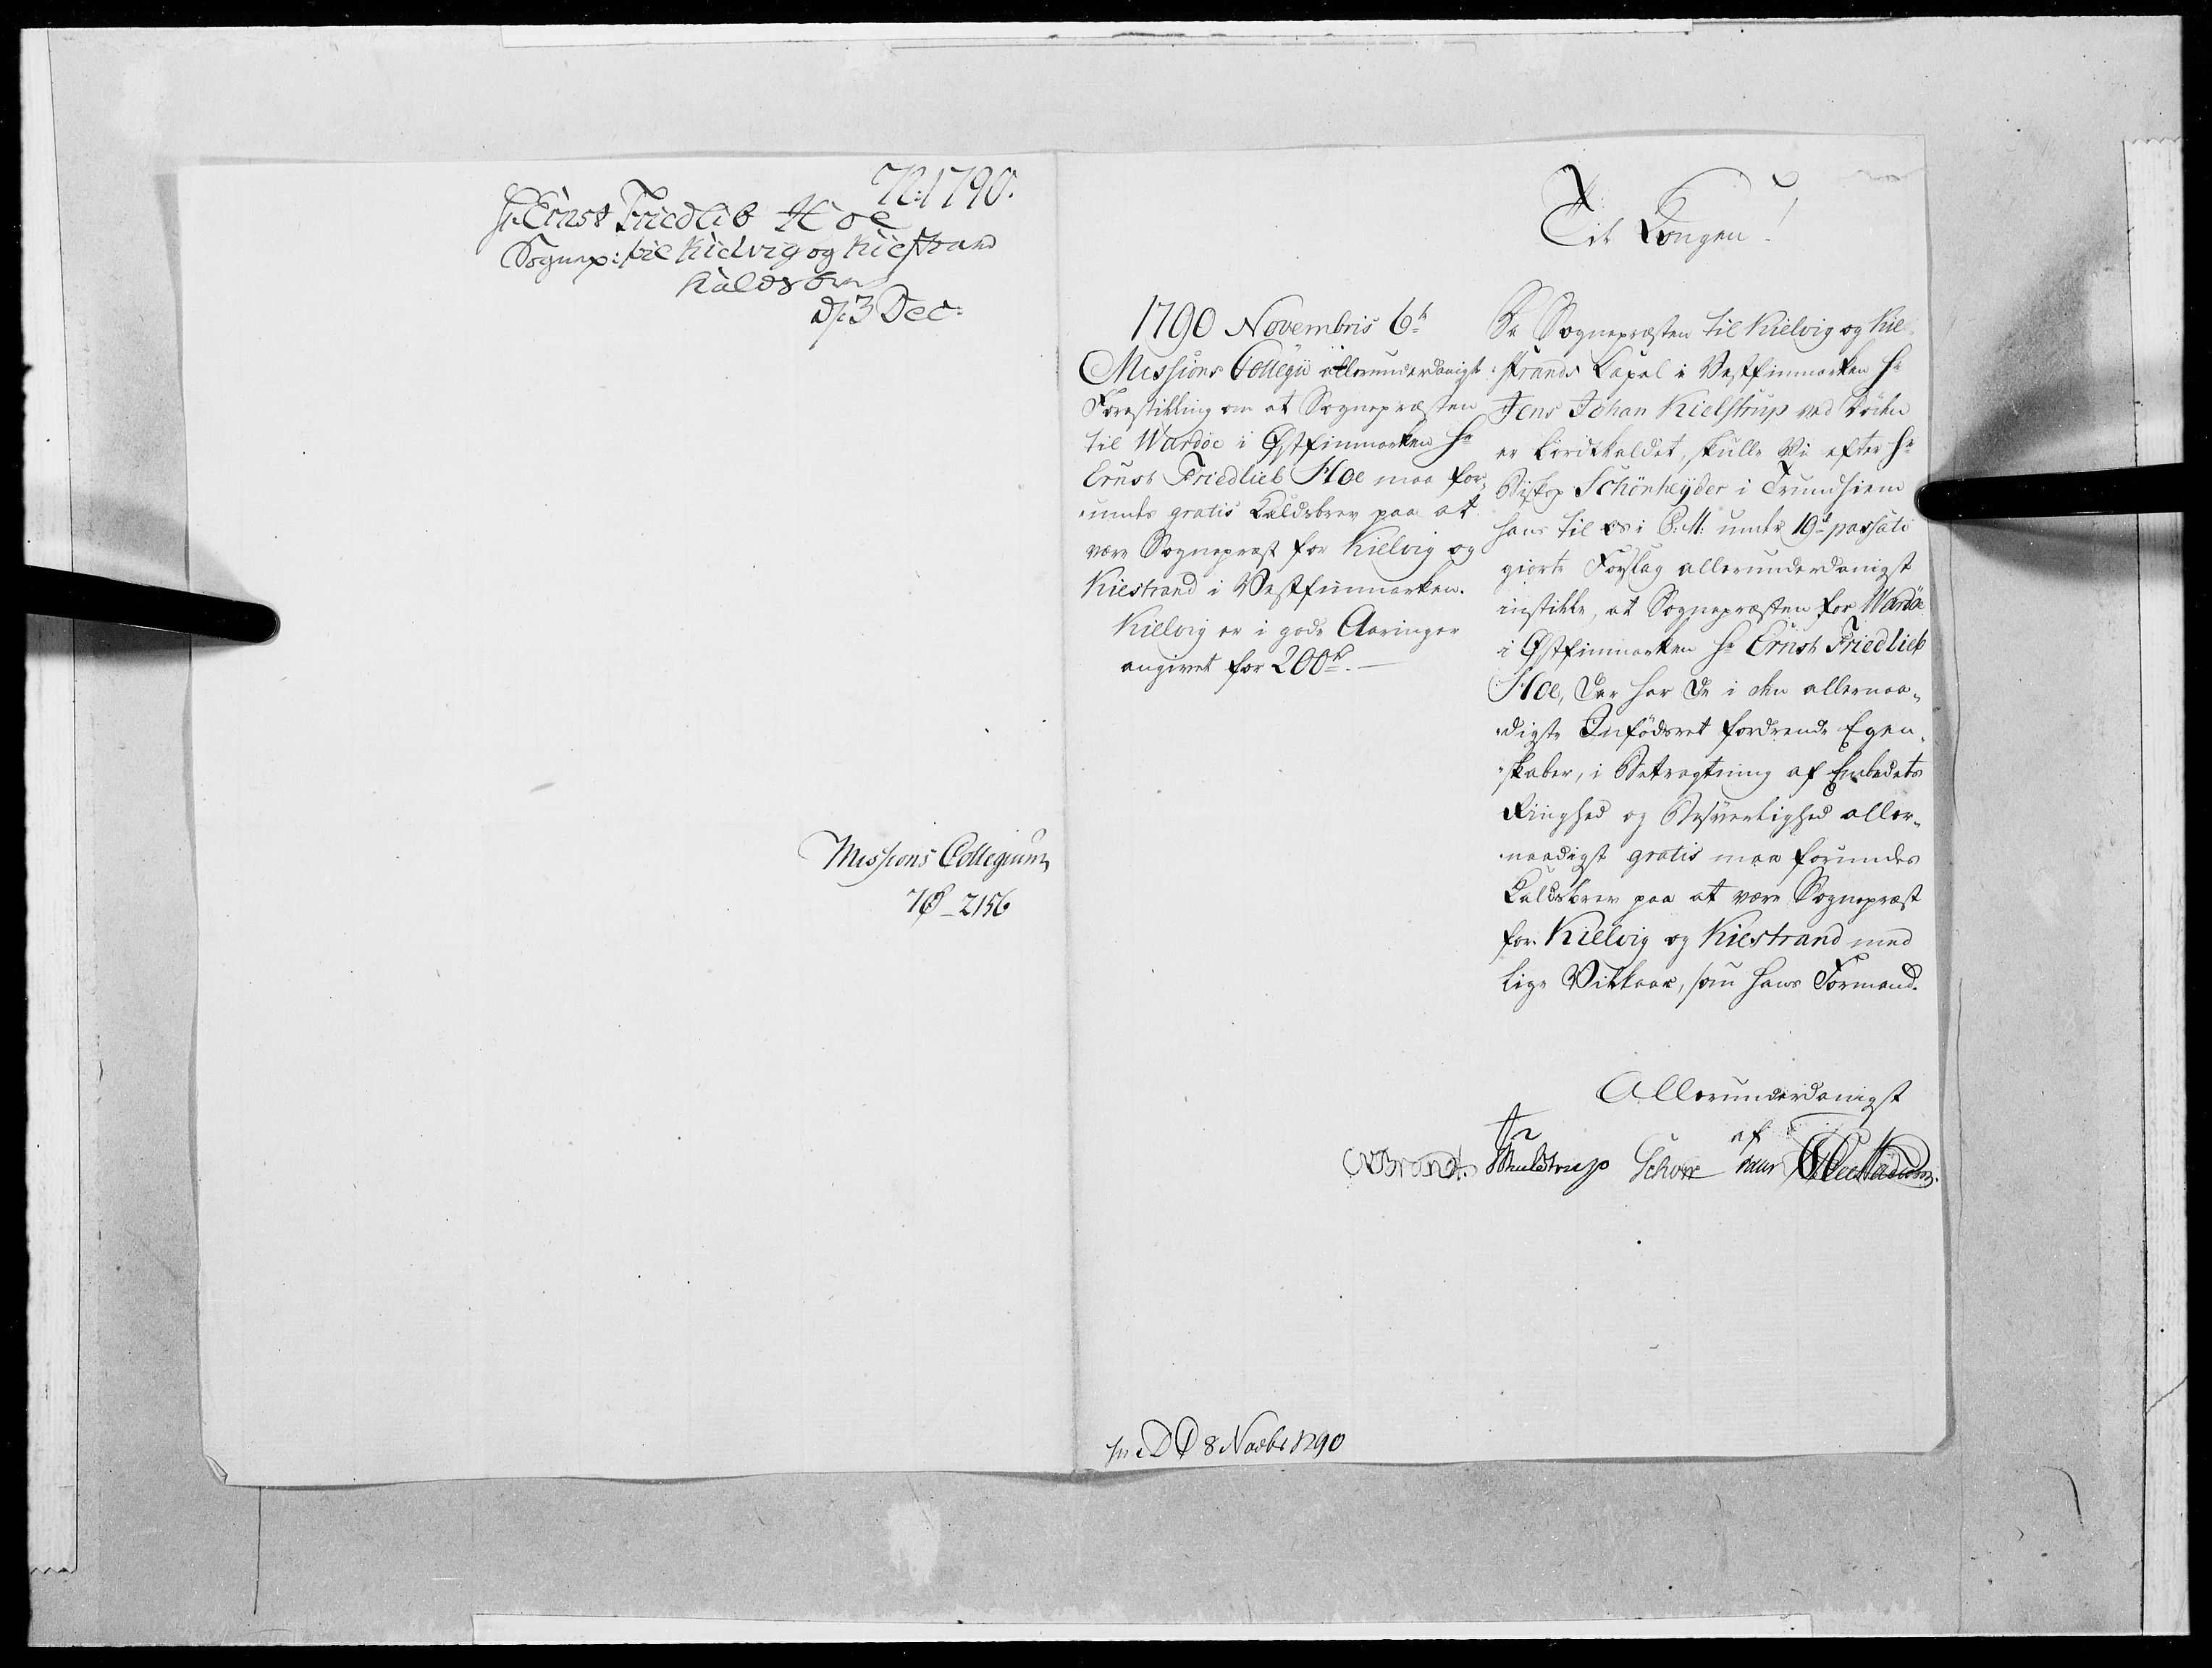 N: 1790.
Hr: Ernst Friedlib Hoe
Sognep: til Kielvig og Kiestrand
Kaldsbrev
D/: 3 Dec:
Missions Collegium
No 2156
1790 Novembris 6te
Missions Collegii allerunderdanigste
Forestilling om at Sognepræsten
til Wardøe i Østfinmarken Hr
Ernst Friedlieb Hoe maa for-
undes gratis Kaldsbrev paa at
være Sognepræst for Kielvig og
Kiestrand i Vestfinmarken.
Kielvig er i gode Aaringer
angivet for 200 rd.
Til Kongen!
Da Sognepræsten til Kielvig og Kie-
strands Capel i Vestfinmarken Hr
Jens Johan Kielstrup ved Døden
er bortkaldet, skulle Vi efter Hr
Biskop Schönheyder i Trundhiem
hans til os i P: M: under 19de passati
giorte Forslag allerunderdanigst
indstille, at Sognepræsten for Wardøe
i Østfinmarken Hr Ernst Friedlieb
Hoe, der har de i den allernaa-
digste Indfødsret fordrende Egen-
skaber, i Betragtning af Embedets
Ringhed og Besværlighed aller-
naadigst gratis maa forundes
Kaldsbrev paa at være Sognepræst
for Kielvig og Kiestrand med
lige Vilkaar, som hans Formand.
Allerunderdanigst
af
Brandt. Hulstrup Schow
in D C 8 Novbr 1790